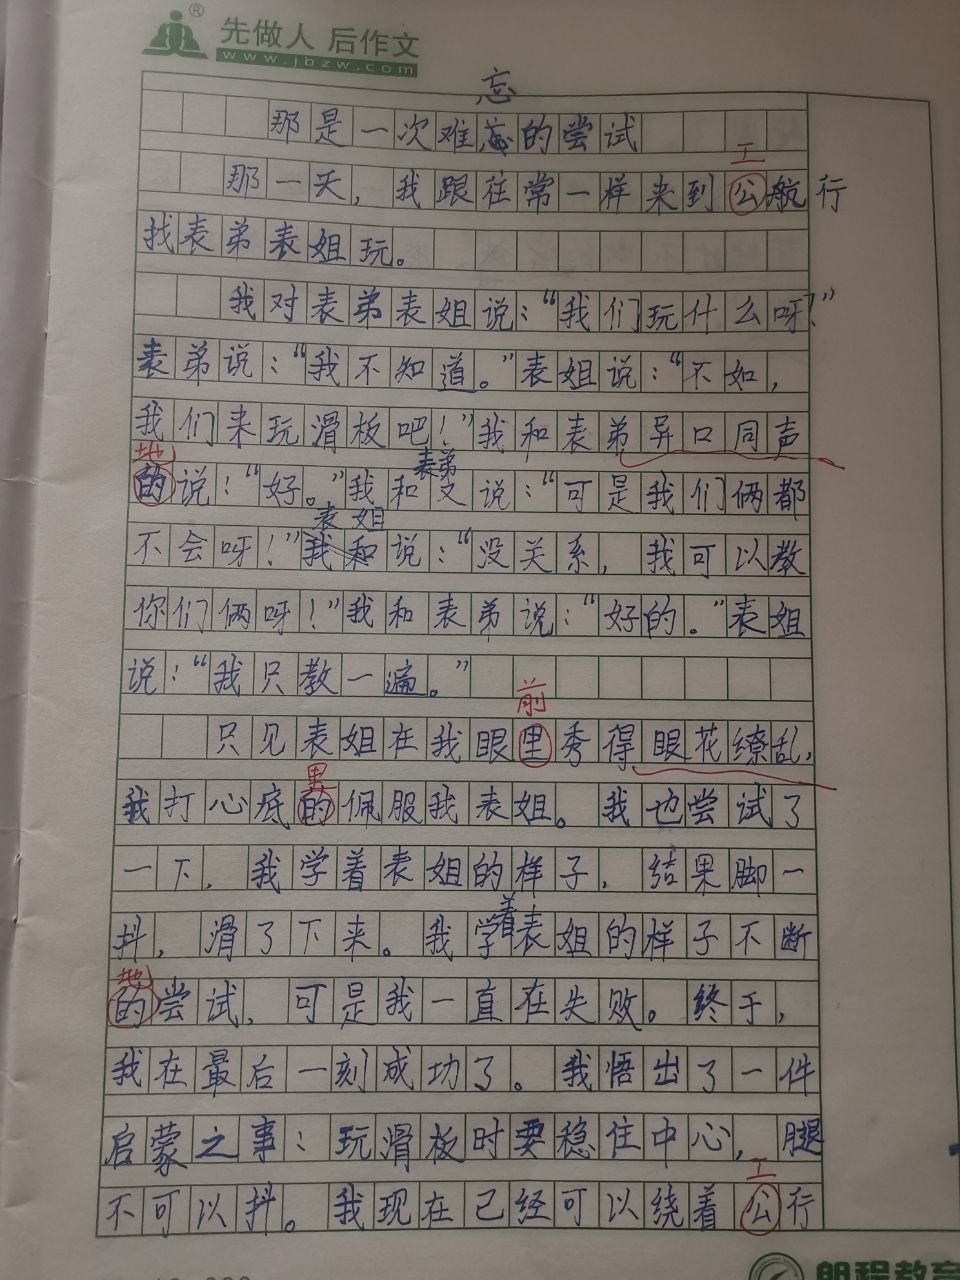 先做人 后作文
www.jbzw.com
忘
那是一次难忘的尝试
工
那一天，我跟往常一样来到公航行
找表弟表姐玩。
我对表弟表姐说：“我们玩什么呀？”
表弟说：“我不知道。”表姐说：“不如，
我们来玩滑板吧！”我和表弟异口同声
地 表弟
的说：“好。”我和又说：“可是我们俩都
表姐
不会呀！”我和说：“没关系，我可以教
你们俩呀！”我和表弟说：“好的。”表姐
说：“我只教一遍。”
前
只见表姐在我眼里秀得眼花缭乱，
里
我打心底的佩服我表姐。我也尝试了
一下，我学着表姐的样子，结果脚一
着
抖，滑了下来。我学表姐的样子不断
地
的尝试，可是我一直在失败。终于，
我在最后一刻成功了。我悟出了一件
启蒙之事：玩滑板时要稳住中心，腿
工
不可以抖。我现在已经可以绕着公行
朗程教育